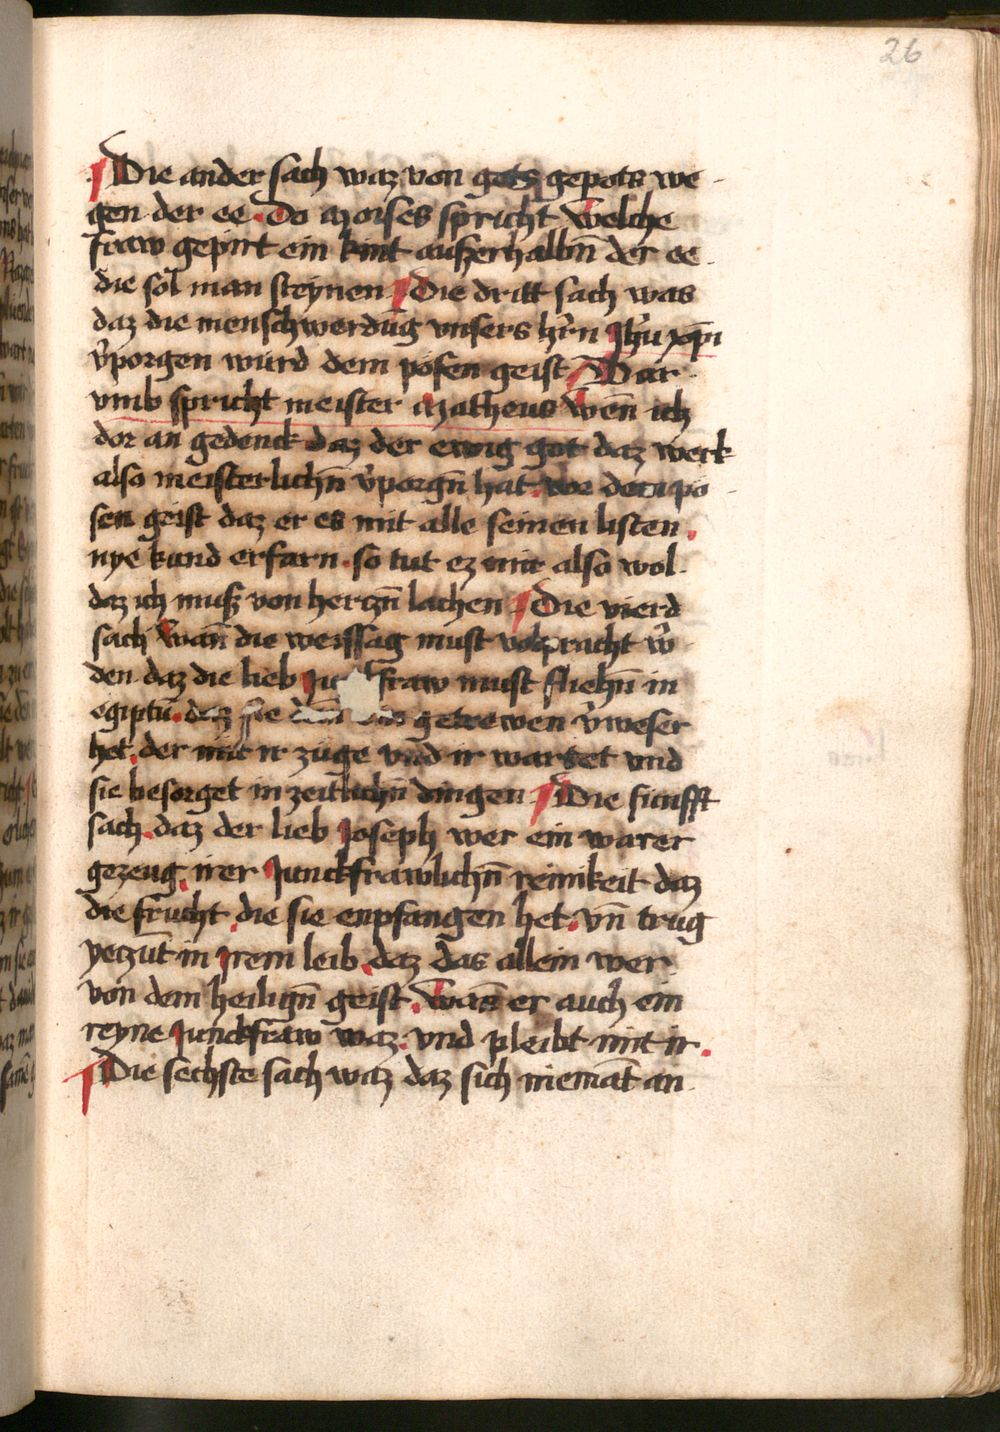 26
Die ander sach waz von gots gepots we
gen der ee. Do Moises spricht Welche
fraw gepirt ein kint außerhalbn̄ der ee
die sol man steynen Die dritt sach was
daz die menschwerdūg vnsers hr̄n Jhū xp̄i
v̄porgen wurd dem posen geist Dar
vmb spricht meister Matheus Wen̄ ich
dor an gedenck daz der ewig got daz werk
also meisterlichn̄ v̄porgn̄ hat. vor dem po
sen geist daz er es mit alle seinen listen.
nye kund erfarn. so tut ez mir also wol.
daz ich muß von hertzn̄ lachen Die vierd
sach wan̄ die weissag must volpracht w̄
den daz die lieb Ju fraw must fliehn̄ in
egiptū. daz sie getrewen v̄weser
het. der mit ir züge vnd ir wartet vnd
sie besorget in zeitlichn̄ dingen Die funfft
sach. daz der lieb Joseph wer ein warer
gezeug. irer Junckfrawlichn̄ reinikeit daz
die frucht. die sie enpfangen het. vn̄ trug
yeczūt in Jrem leib. daz das allein wer
von dem heilign̄ geist. wan̄ er auch ein
reyne Junckfraw waz. vnd pleibt mit ir.
Die sechste sach waz daz sich niemāt an